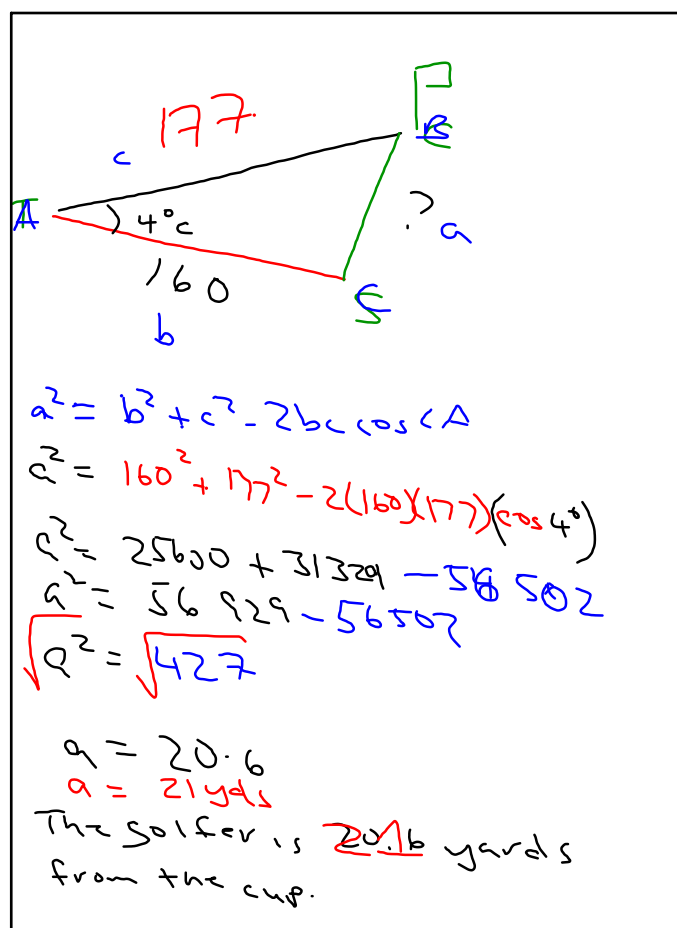 177.
c
B
A
4°c
?
a
160
C
b
a² = b² + c² - 2bc cos<A
a² = 160² + 177² - 2(160)(177)(cos 4°)
a² = 25600 + 31329 - 56 502
a² = 56 929 - 56502
√a² = √427
a = 20.6
a = 21 yds
The golfer is 21 yards
from the cup.